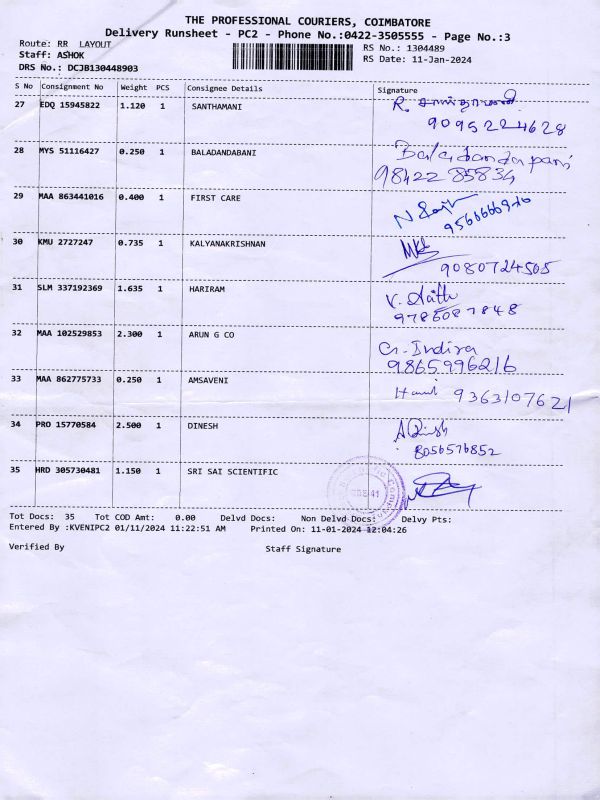 THE PROFESSIONAL COURIERS, COIMBATORE
Delivery Runsheet - PC2 - Phone No.:0422-3505555 - Page No.:3
Route: RR LAYOUT RS No.: 1304489
Staff: ASHOK RS Date: 11-Jan-2024
DRS No.: DCJB130448903
S No Consignment No Weight PCS Consignee Details Signature
27 EDQ 15945822 1.120 1 SANTHAMANI R. சாந்தாமணி
9095224628
28 MYS 51116427 0.250 1 BALADANDABANI Baladandapani
98422 85834
29 MAA 863441016 0.400 1 FIRST CARE
30 KMU 2727247 0.735 1 KALYANAKRISHNAN
9080724505
31 SLM 337192369 1.635 1 HARIRAM V.
9786087848
32 MAA 102529853 2.300 1 ARUN G CO G. Indira
9865996216
33 MAA 862775733 0.250 1 AMSAVENI 9363107621
34 PRO 15770584 2.500 1 DINESH
8056576852
35 HRD 305730481 1.150 1 SRI SAI SCIENTIFIC
Tot Docs: 35 Tot COD Amt: 0.00 Delvd Docs: Non Delvd Docs: Delvy Pts:
Entered By :KVENIPC2 01/11/2024 11:22:51 AM Printed On: 11-01-2024 12:04:26
Verified By Staff Signature